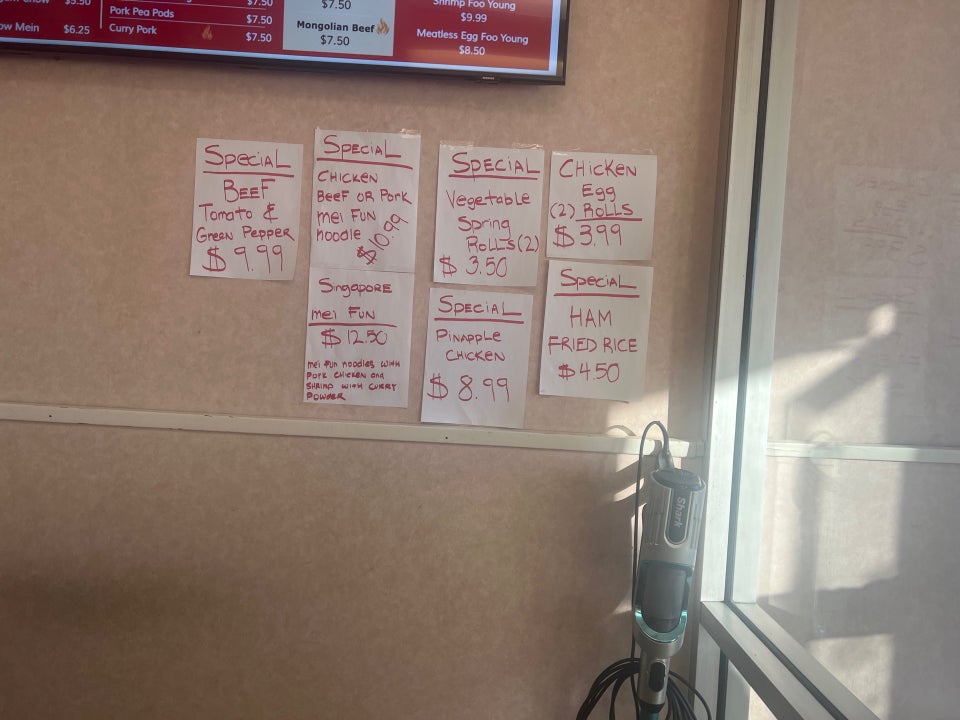 $5.50
$7.50
Pork Pea Pods $7.50
Curry Pork $7.50
Mein $6.25
$7.50
Mongolian Beef
$7.50
Shrimp Foo Young
$9.99
Meatless Egg Foo Young
$8.50
SPECIAL
BEEF
Tomato &
Green Pepper
$9.99
SPECIAL
CHICKEN
BEEF OR PORK
mei FUN
noodle $10.99
Singapore
mei FUN
$12.50
mei fun noodles with
PORK CHICKEN and
SHRIMP WITH CURRY
POWDER
SPECIAL
Vegetable
Spring
ROLLS (2)
$3.50
SPECIAL
PINAPPLE
CHICKEN
$8.99
CHICKEN
Egg
(2) ROLLS
$3.99
SPECIAL
HAM
FRIED RICE
$4.50
Shark